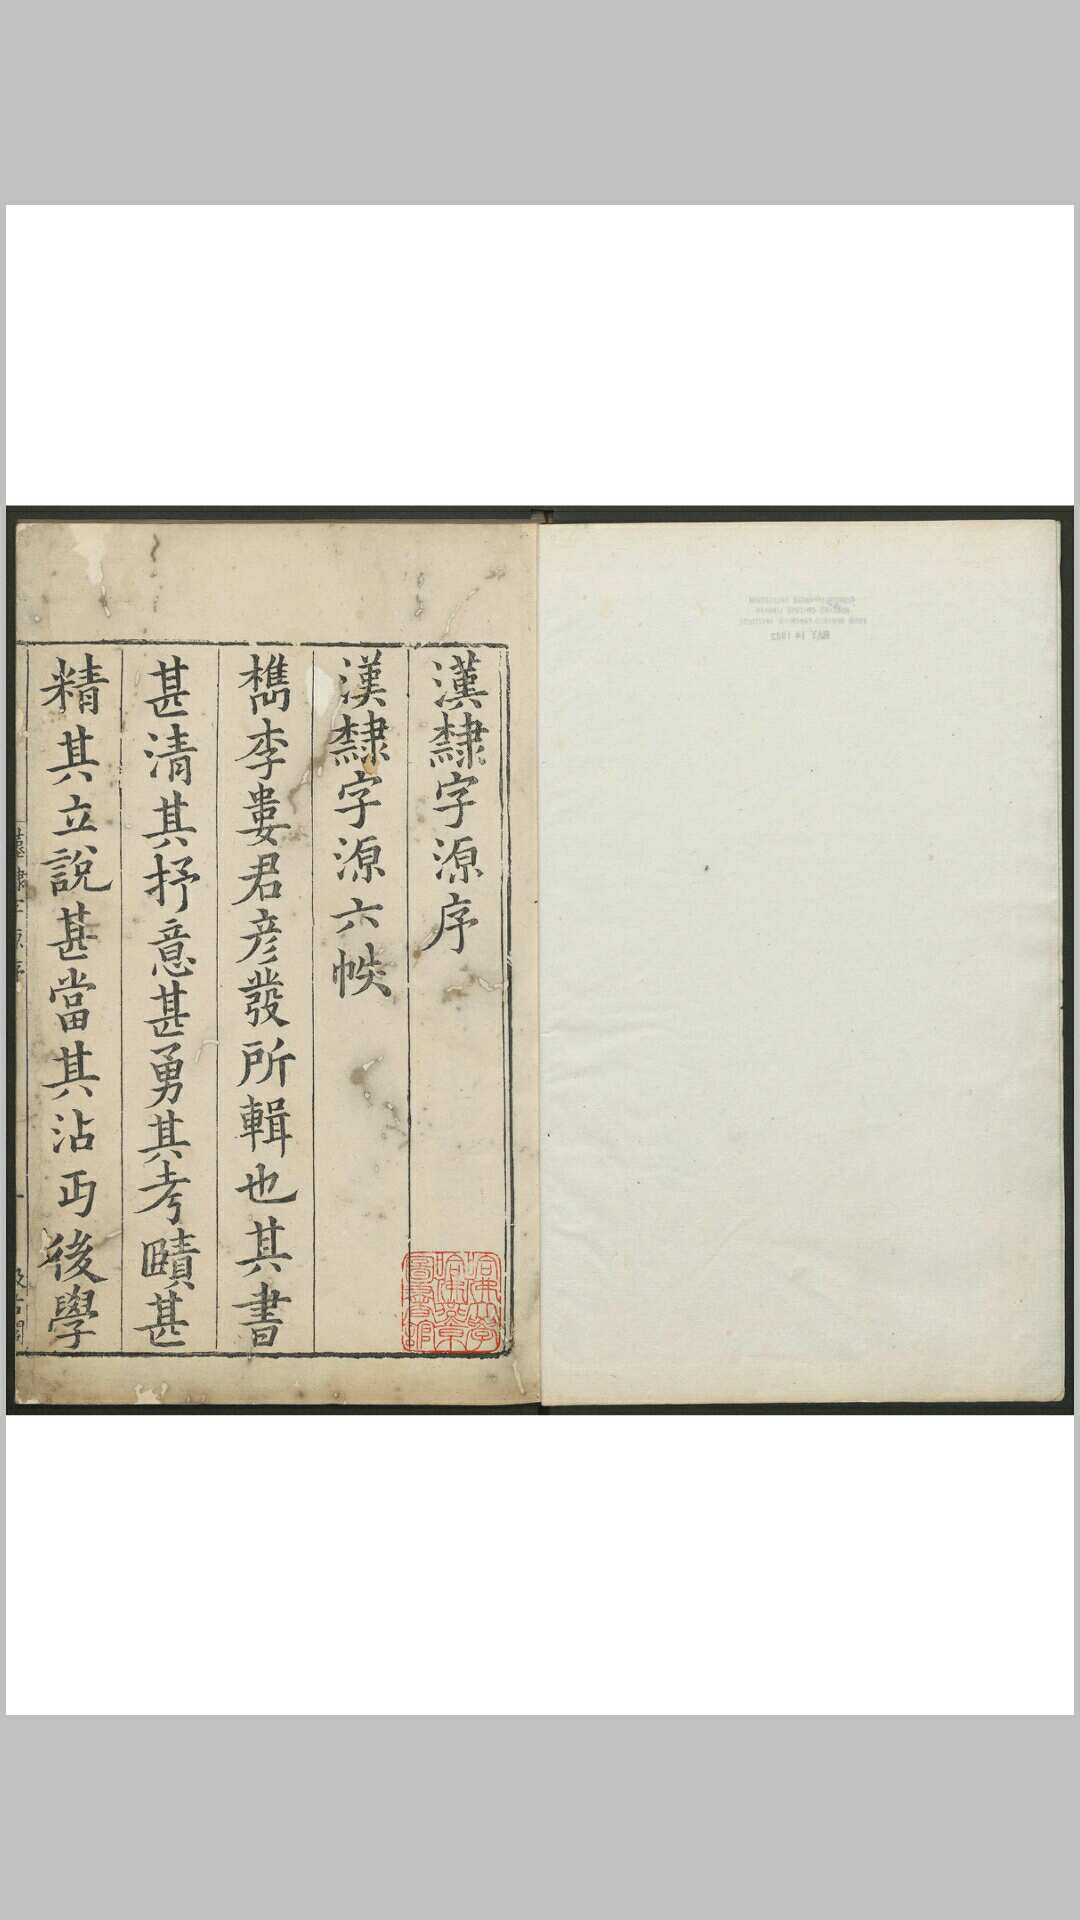 漢隸字源序
漢隸字源六帙
檇李婁君彥發所輯也其書
甚清其抒意甚勇其考賾甚
精其立說甚當其沾丐後學
漢隸字源序
一
汲古閣
哈佛大學
哈佛燕京
圖書館